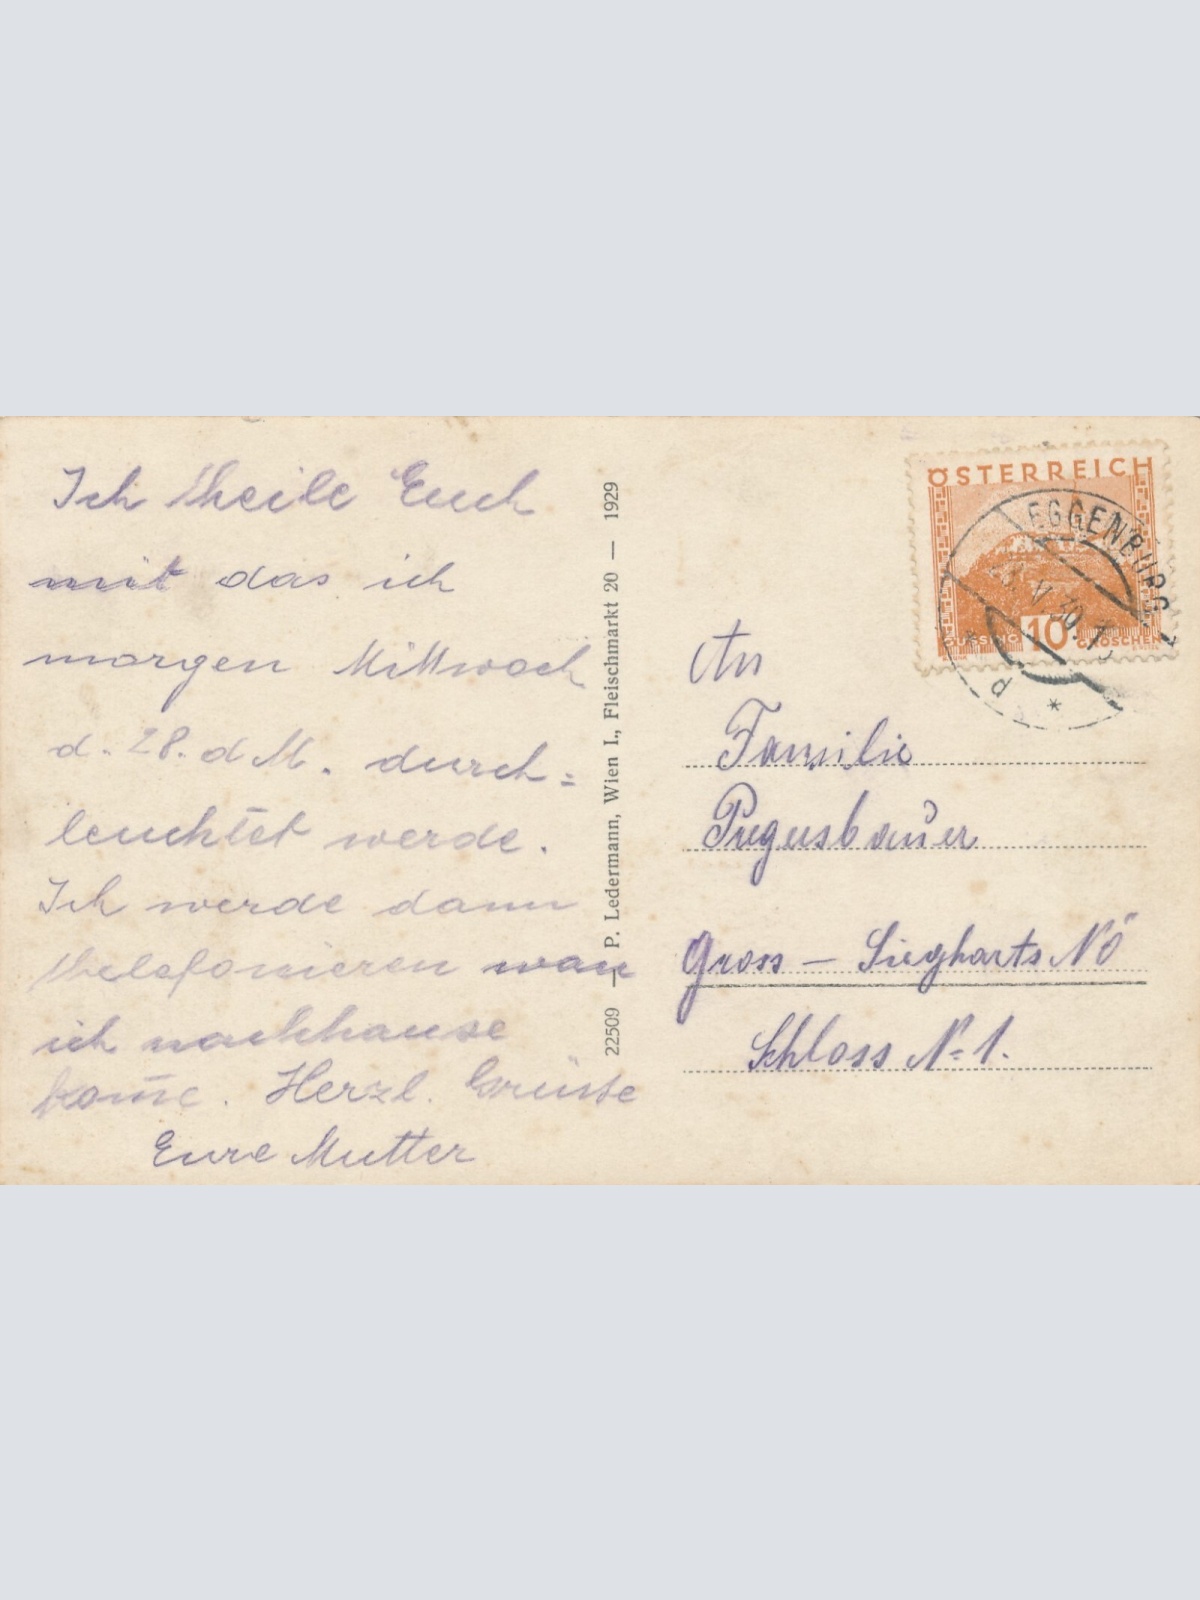 Ich theile Euch
mit das ich
morgen Mittwoch
d. 28. d M. durch=
leuchtet werde.
Ich werde dann
thelefonieren wan
ich nachhause
kom̄e. Herzl. Grüsse
Eure Mutter
22509 — P. Ledermann, Wien I., Fleischmarkt 20 — 1929
ÖSTERREICH
EGGENBURG
GÜSSING 10 GROSCHEN
An
Familie
Gross - Siegharts NÖ
Schloss No 1.